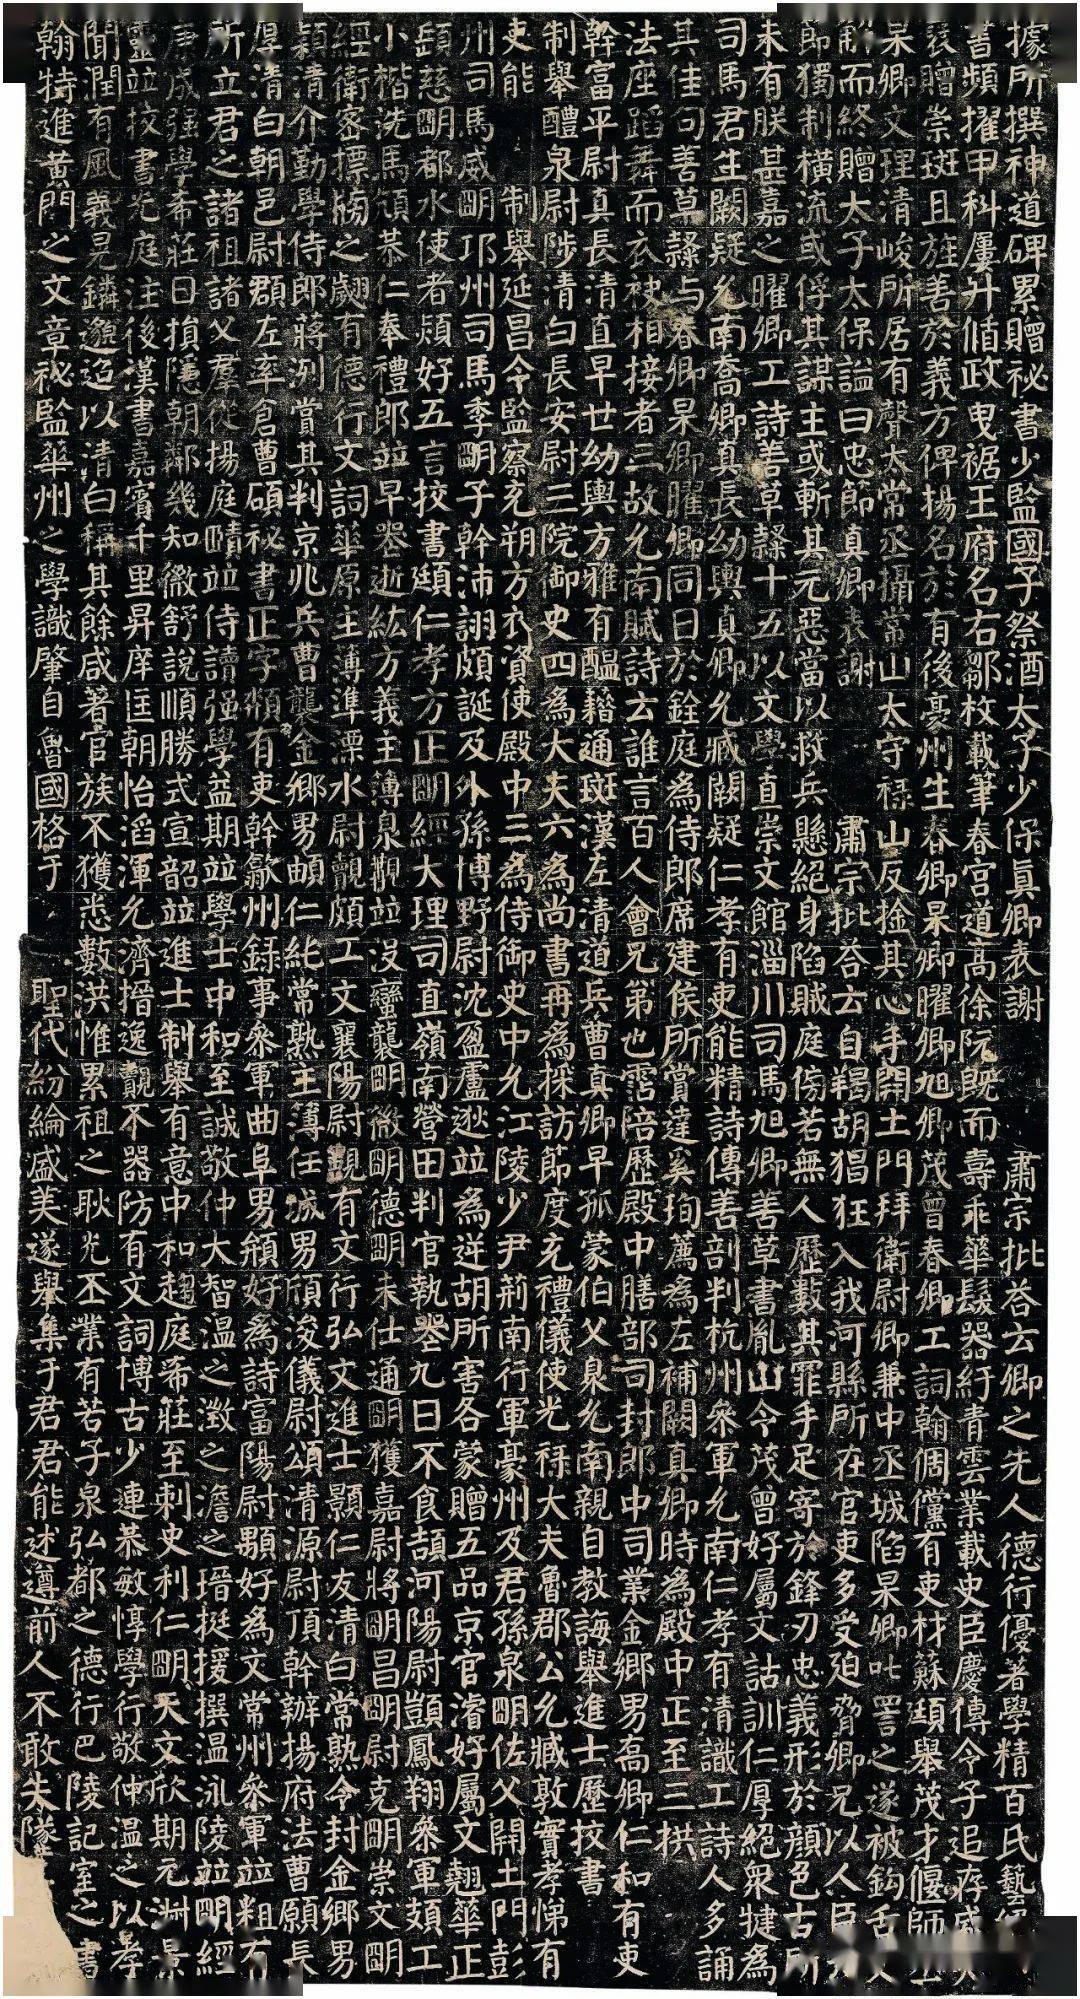 據所撰神道碑累贈祕書少監國子祭酒太子少保真卿表謝 肅宗批荅云卿之先人德行優著學精百氏藝絕
書頻擢甲科屢升政曳裾王府名右鄒枚載筆春宮道高徐阮既而壽乖華髮器紆青雲業載史臣慶傳令子追存盛
襃贈崇班且旌善於義方俾揚名於有後豪州生春卿杲卿曜卿旭卿茂曾春卿工詞翰倜儻有吏材蘇頲舉茂才偃師丞
杲卿文理清峻所居有聲太常丞攝常山太守祿山反捦其心手開土門拜衛尉卿兼中丞城陷杲卿叱詈之遂被鉤舌支
解而終贈太子太保謚曰忠節真卿表謝 肅宗批荅云自羯胡猖狂入我河縣所在官吏多受迫脅卿兄以人臣大
節獨制橫流或俘其謀主或斬其元惡當以救兵懸絕身陷賊庭傍若無人歷數其罪手足寄於鋒刃忠義形於顏色古所
未有朕甚嘉之曜卿工詩善草隸十五以文學直崇文館淄川司馬旭卿善草書胤山令茂曾好屬文詁訓仁厚絕衆犍為
司馬君生闕疑允南喬卿真長幼輿真卿允臧闕疑仁孝有吏能精詩傳善剖判杭州參軍允南仁孝有清識工詩人多誦
其佳句善草隸与春卿杲卿曜卿同日於銓庭為侍郎席建侯所賞達奚珣薦為左補闕真卿時為殿中正至三拱
法座蹈舞而衣袂相接者三故允南賦詩云誰言百人會兄弟也霑陪歷殿中膳部司封郎中司業金鄉男喬卿仁和有吏
幹富平尉真長清直早世幼輿方雅有醞藉通班漢左清道兵曹真卿早孤蒙伯父臮允南親自教誨舉進士歷校書
制舉醴泉尉陟清白長安尉三院御史四為大夫六為尚書再為採訪節度充禮儀使光祿大夫魯郡公允臧敦實孝悌有
吏能 制舉延昌令監察充朔方衣資使殿中三為侍御史中允江陵少尹荊南行軍豪州及君孫泉明佐父開土門彭
州司馬威明邛州司馬季明子幹沛詡頗誕及外孫博野尉沈盈盧逖並為逆胡所害各蒙贈五品京官濬好屬文翹華正
頣慈明都水使者熲好五言校書頲仁孝方正明經大理司直嶺南營田判官執喪九日不食頡河陽尉顗鳳翔參軍頍工
小楷洗馬頎恭仁奉禮郎並早器逝紘方義主簿泉覯並沒蠻襲明徹明德明未仕通明獲嘉尉將明昌明尉克明崇文明
經衛密摽牓之翽有德行文詞華原主薄準溧水尉覿頗工文襄陽尉覲有文行弘文進士顯仁友清白常熟令封金鄉男
穎清介勤學侍郎蔣洌賞其判京兆兵曹襲金鄉男頔仁純常熟主簿任城男頎浚儀尉頌清源尉頂幹辦揚府法曹願長
厚清白朝邑尉頵左率倉曹碩祕書正字頮有吏幹歙州錄事參軍曲阜男頒好為詩富陽尉顒好為文常州參軍並粗有
所立君之諸祖諸父羣從揚庭賾並侍讀强學益期並學士中和至誠敬仲大智溫之澂之澹之瑨挺援撰溫泳陵並明經
康成强學希莊日損隱朝鄰幾知微舒說順勝式宣韶並進士制舉有意中和趨庭希莊至刺史利仁明天文欣期元淑景
靈並技書光庭注後漢書嘉賓千里昇庠匡朝怡滔渾允濟搢逸覿不器防有文詞博古少連恭敏惇學行敬仲溫之以孝
聞潤有風義晃鏻邈迨以清白稱其餘咸著官族不獲悉數洪惟累祖之耿光丕業有若子泉弘都之德行巴陵記室之書
翰特進黃門之文章祕監華州之學識肇自魯國格于 聖代紛綸盛美遂舉集于君君能述遵前人不敢失墜